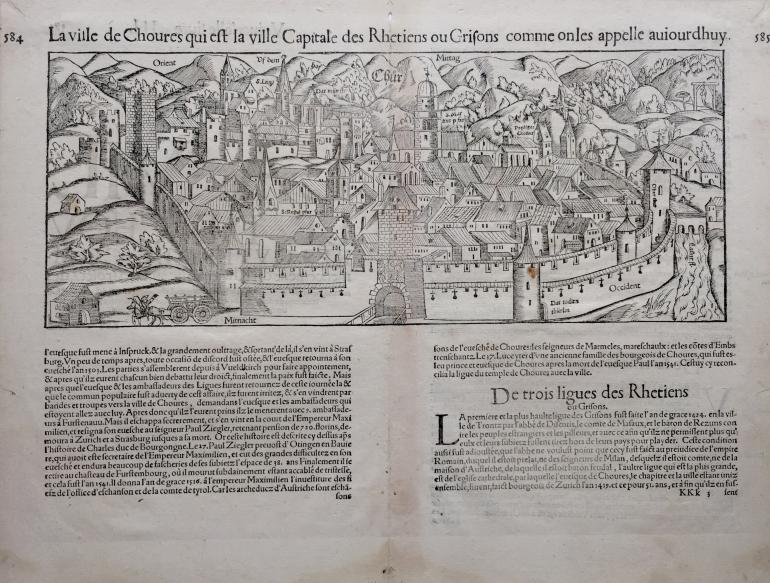 584
La ville de Choures qui est la ville Capitale des Rhetiens ou Grisons comme on les appelle auiourdhuy.
585
Orient
Vf dem
Mittag
S. Lucy
Chür
Occident
Mitnacht
l'euesque fust mené à Inspruck, & la grandement oultragé, & sortant de là, il s'en vint à Straf
burg. Vn peu de temps apres, toute occasiō de discord fust ostée, & l'euesque retourna à son
euesché l'an 1503. Les parties s'assemblerent depuis à Vueldkirch pour faire appointement,
& apres qu'ilz eurent chascun bien debatu leur droict, finalement la paix fust faicte. Mais
apres que l'euesque & les ambassadeurs des Ligues furent retournez de ceste iournée la &
que le commun populaire fust aduerty de cest affaire, ilz furent irritez, & s'en vindrent par
bandes et trouppes vers la ville de Choures, demandans l'euesque et les ambassadeurs qui
estoyent allez auec luy. Apres donc qu'ilz l'eurent prins ilz le menerent auec 7. ambassade
à Furstenauu. Mais il eschappa secretement, et s'en vint en la court de l'Empereur Maxi
milien, et resigna son euesché au seigneur Paul Ziegler, retenant pension de 720. florins, de
moura à Zurich et a Strasburg iusques a sa mort. Or ceste histoire est descrite cy dessus aps
l'histoire de Charles duc de Bourgongne. Le 17. Paul Ziegler preuost d'Otingen en Bauie
re, qui auoit esté secretaire de l'Empereur Maximilien, et eut des grandes difficultez en son
euesché et endura beaucoup de fascheries de ses subietz l'espace de 38. ans Finalement il se
retire au chasteau de Furstenbourg, où il mourut subitement estant accablé de tristesse,
et cela fust l'an 1541. Il donna l'an de grace 1516. à l'empereur Maximilien l'inuestiture des fi
efz de l'office d'eschanson et de la comte de tyrol. Car les archeducz d'Austriche sont eschā-
sons
sons de l'euesché de Choures: les seigneurs de Marmeles, mareschaux: et les cōtes d'Embs
trenschantz. Le 17. Luce yter d'vne ancienne famille des bourgeois de Choures, qui fust es-
leu prince et euesque de Choures apres la mort de l'euesque Paul l'an 1541. Cestuy cy recon-
cilia la ligue du temple de Choures auec la ville.
De trois ligues des Rhetiens
ou Grisons.
LA premiere et la plus haulte ligue des Grisons fust faite l'an de grace 1424. en la vil
le de Trontz par l'abbé de Disentis, le comte de Mosaux, et le baron de Rezuns con
tre les peuples estrangers et les pilleurs, et aussi ce afin qu'ilz ne permissent plus qu'
eulx et leurs subietz fussent tirez hors de leurs pays pour playder. Ceste condition
aussi fust adioustée, que l'abbé ne vouloit point que cecy fust faict au preiudice de l'empire
Romain, duquel il estoit prelat, ne des seigneurs de Milan, desquelz il estoit comte, ne de la
maison d'Austriche, de laquelle il estoit baron feudal, l'aultre ligue qui est la plus grande,
est de l'eglise cathedrale, par laquelle l'euesque de Choures, le chapitre et la ville estant vniz
ensemble, furent faict bourgeois de Zurich l'an 1419. et ce pour 51. ans, et à fin qu'ilz en fus-
KKk 3 sent